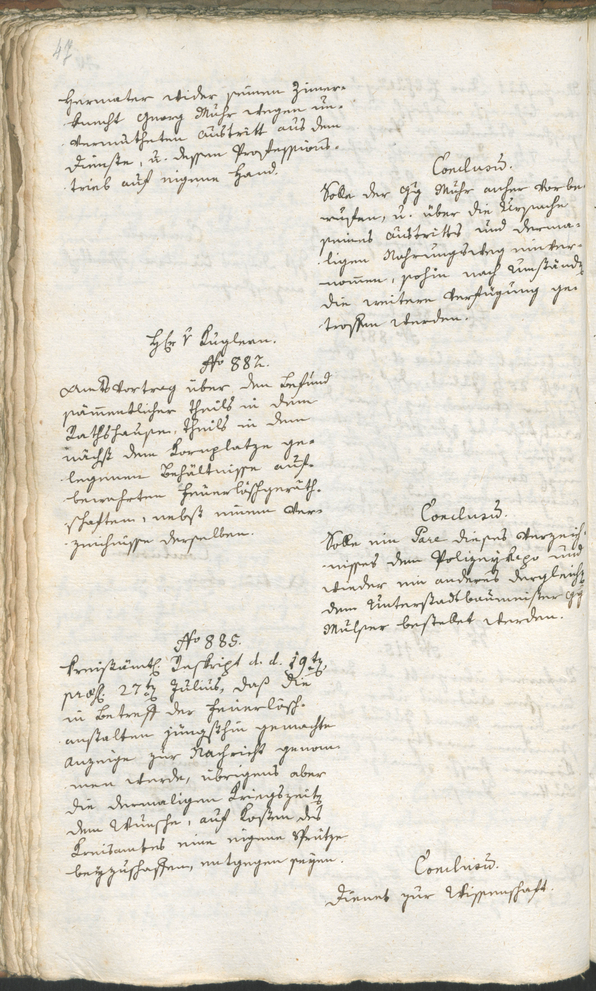 47
Hermeter wider seinen Zimer-
knecht Georg Muhr wegen un-
vermutheten Austritt aus dem
Dienste, u. dessen Professions-
trieb auf eigene Hand.
Conclusū.
Solle der Gg Muhr anher vorbe-
rufen, u. über die Ursache
seines Austritts und derma-
ligen Nahrungsweg einver-
nommen, sohin nach Umständ
die weitere Verfügung ge-
troffen werden.
H: v Kuglern.
No 882.
Amtsvortrag über den Befund
sämmentlicher theils in dem
Rathhause, theils in dem
nächst dem Kornplatze ge-
legenen Behältnisse auf-
bewahrten Feuerlöschgeräth-
schaften, nebst einem Ver-
zeichnisse derselben.
Conclusū.
Solle ein Pare dieses Verzeich-
nisses dem Polizey und
wieder ein anderes dergleich
dem Unterstadtbaumeister Gg
Mülser bestellet werden.
No 885.
Kreisämtl. Reskript d. d. 19t
præs. 27t Julius, daß die
in Betreff der Feuerlösch-
anstalten jüngsthin gemachte
Anzeige zur Nachricht genom-
men wurde, übrigens aber
die dermaligen Kriegszeit
dem Wunsche, auf Kosten des
Kreisamtes eine eigene Spritze
beyzuschaffen, entgegen seyen.
Conclusū.
Dienet zur Wissenschaft.